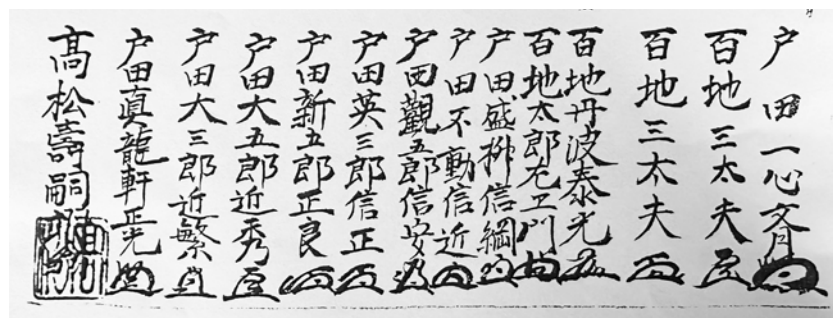 戸田一心斉
百地三太夫
百地三太夫
百地丹波泰光
百地太郎左エ門
戸田盛柳信綱
戸田不動信近
戸田観五郎信安
戸田英三郎信正
戸田新五郎正良
戸田大五郎近秀
戸田大三郎近繁
戸田真龍軒正光
高松壽嗣